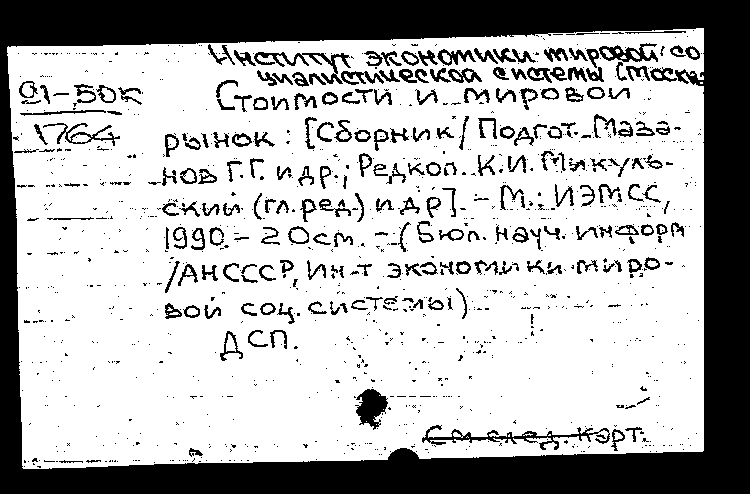 Институт экономики мировой со
циалистической системы (Москва
91-50к Стоимости и мировой
1764 рынок : [Сборник / Подгот. Маза-
нов Г.Г. и др.; Редкол. К.И. Микуль-
ский (гл.ред.) и др]. - М.: ИЭМСС,
1990. - 20см. - (Бюл. науч. информ
/АНСССР, Ин-т экономики миро-
вой соц. системы)
ДСП.
См след. карт.